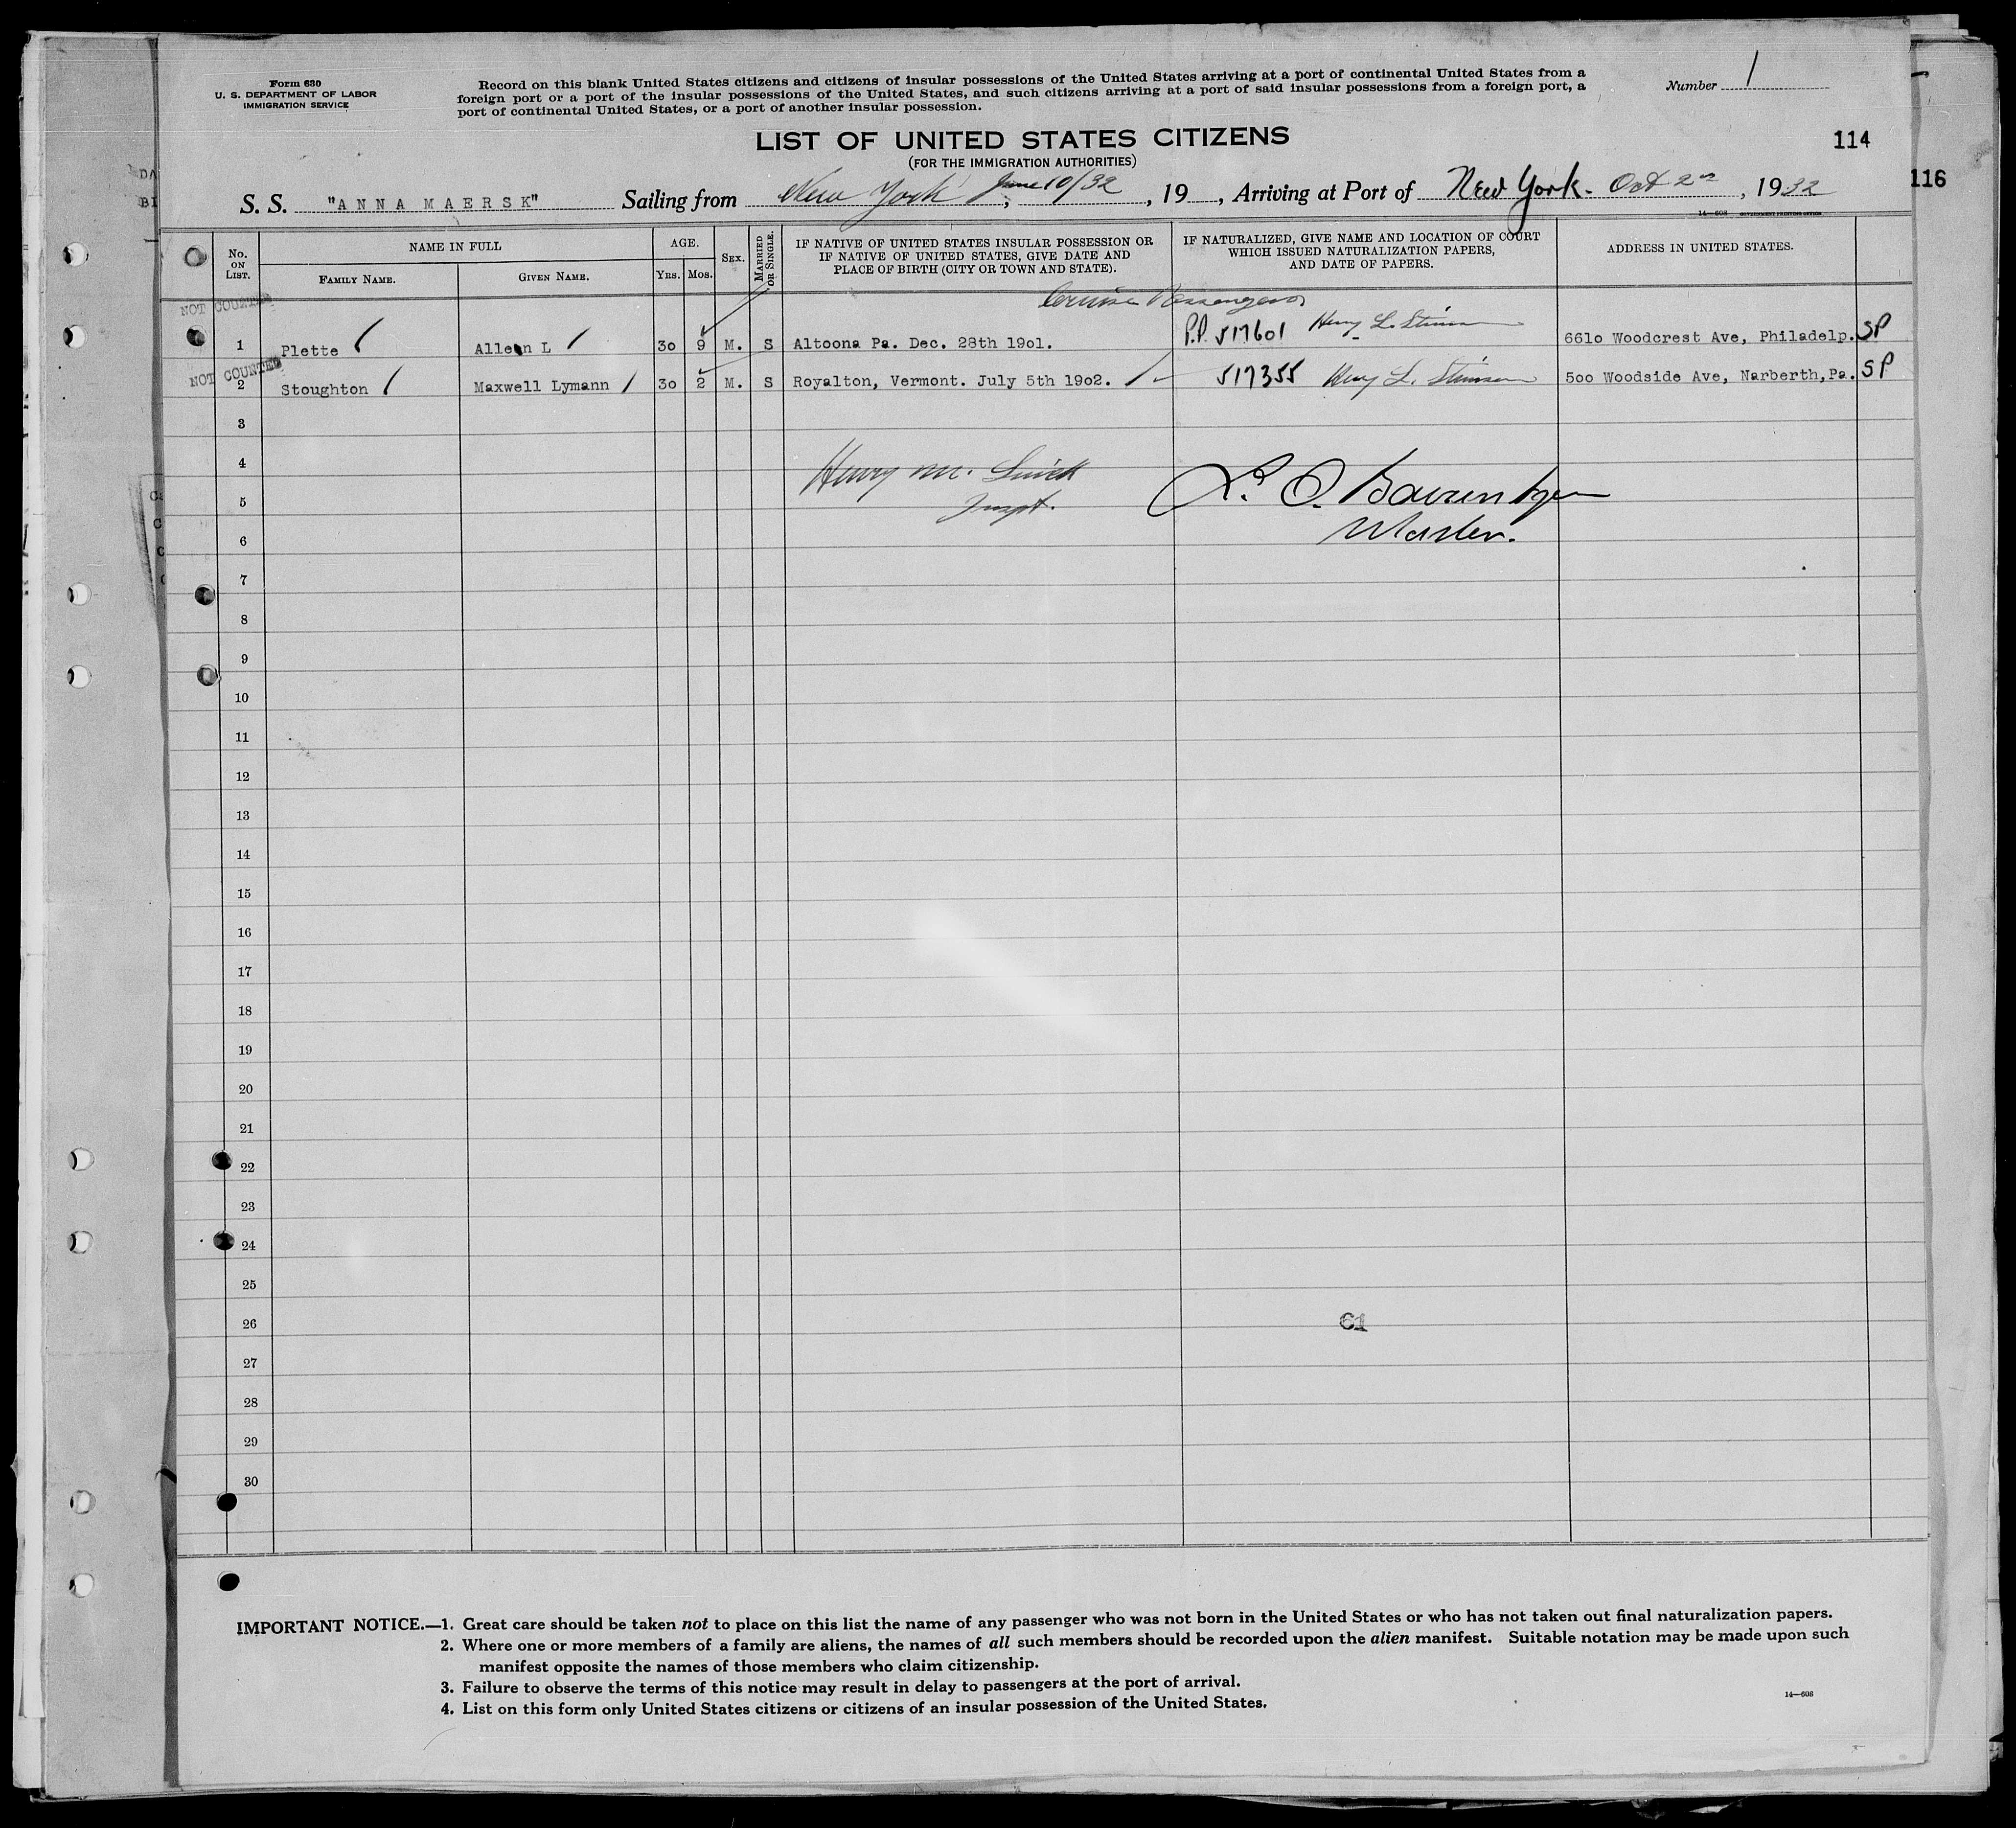 Form 630
U. S. DEPARTMENT OF LABOR
IMMIGRATION SERVICE
Record on this blank United States citizens and citizens of insular possessions of the United States arriving at a port of continental United States from a
foreign port or a port of the insular possessions of the United States, and such citizens arriving at a port of said insular possessions from a foreign port, a
port of continental United States, or a port of another insular possession.
Number 1
LIST OF UNITED STATES CITIZENS
(FOR THE IMMIGRATION AUTHORITIES)
114
116
S. S. "ANNA MAERSK" Sailing from New York, June 10/32, 19 , Arriving at Port of New York. Oct 2nd, 1932
14—608 GOVERNMENT PRINTING OFFICE
No. ON LIST.
NAME IN FULL
FAMILY NAME. GIVEN NAME.
AGE.
YRS. MOS.
SEX.
MARRIED OR SINGLE.
IF NATIVE OF UNITED STATES INSULAR POSSESSION OR
IF NATIVE OF UNITED STATES, GIVE DATE AND
PLACE OF BIRTH (CITY OR TOWN AND STATE).
IF NATURALIZED, GIVE NAME AND LOCATION OF COURT
WHICH ISSUED NATURALIZATION PAPERS,
AND DATE OF PAPERS.
ADDRESS IN UNITED STATES.
Cruise Passengers
NOT COUNTED
1 Plette Alleen L 30 9 M. S Altoona Pa. Dec. 28th 1901. P.P. 517601 Henry L. Stimson 6610 Woodcrest Ave, Philadelp. SP
NOT COUNTED
2 Stoughton Maxwell Lymann 30 2 M. S Royalton, Vermont. July 5th 1902. 517355 Henry L. Stimson 500 Woodside Ave, Narberth, Pa. SP
3
4
Henry M.
5
Inspt.
6
Master.
7
8
9
10
11
12
13
14
15
16
17
18
19
20
21
22
23
24
25
26
61
27
28
29
30
IMPORTANT NOTICE.—1. Great care should be taken not to place on this list the name of any passenger who was not born in the United States or who has not taken out final naturalization papers.
2. Where one or more members of a family are aliens, the names of all such members should be recorded upon the alien manifest. Suitable notation may be made upon such
manifest opposite the names of those members who claim citizenship.
3. Failure to observe the terms of this notice may result in delay to passengers at the port of arrival.
4. List on this form only United States citizens or citizens of an insular possession of the United States.
14—608